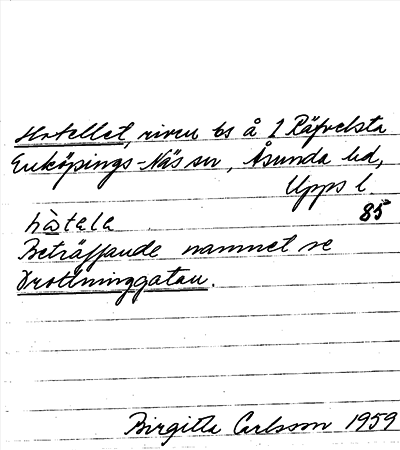 Hotellet, riven bs å 1 Räfvelsta
Enköpings-Näs sn, Åsunda hd,
Upps l
85
håtele
Beträffande namnet se
Drottninggatan.
Birgitta Carlsson 1959